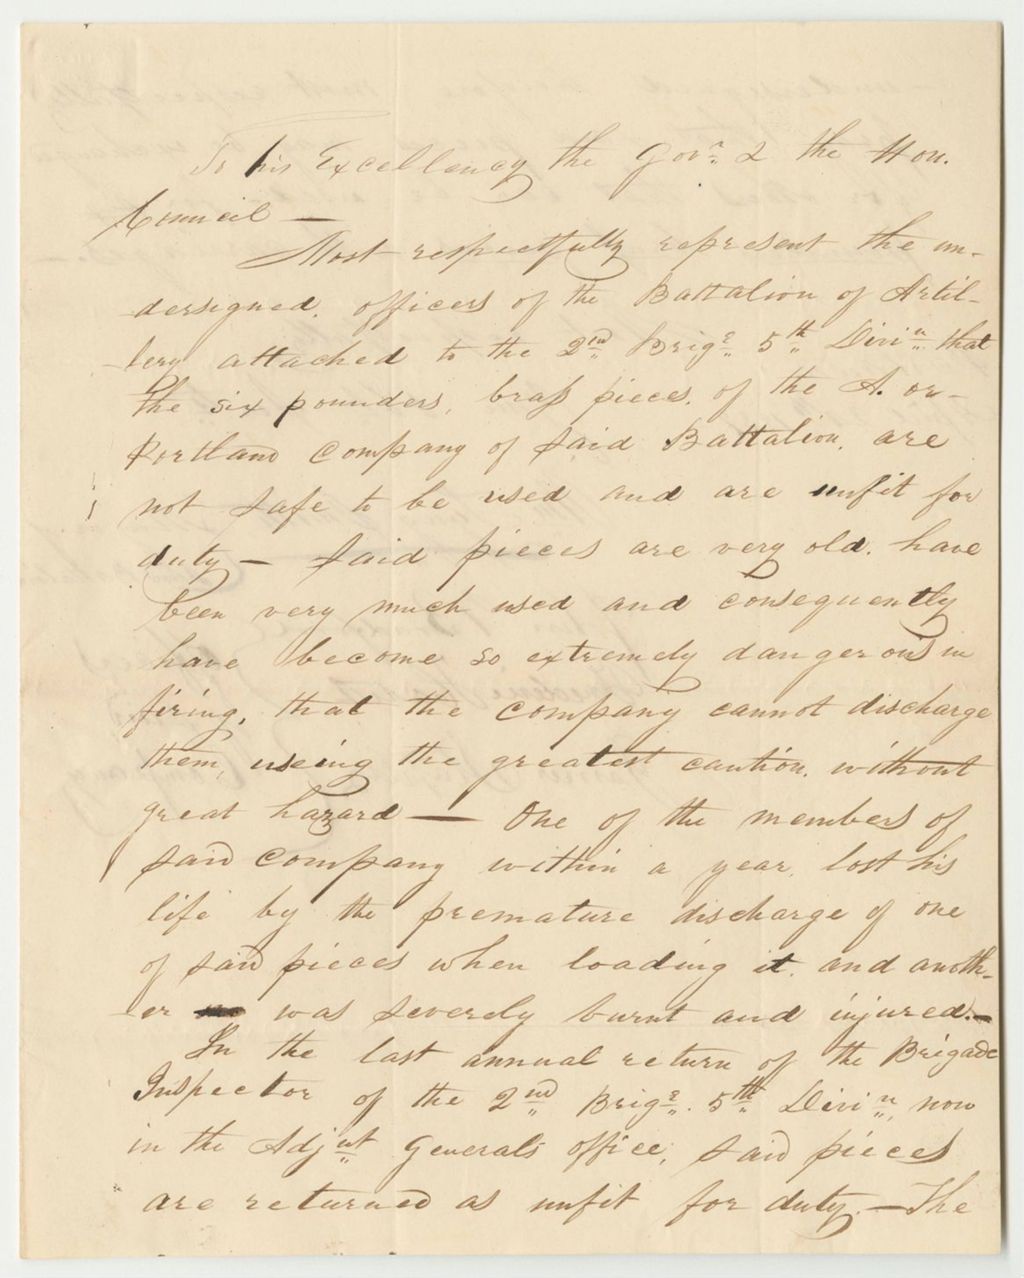 To his Excellency the Govr. & the Hon.
Council —
Most respectfully represent the un-
dersigned, officers of the Battalion of Artil-
lery attached to the 2nd Brige 5th Divin. that
the six pounders, brass pieces, of the A. or
Portland Company of said Battalion, are
not safe to be used and are unfit for
duty — Said pieces are very old, have
been very much used and consequently
have become so extremely dangerous in
firing, that the company cannot discharge
them, useing the greatest caution, without
great hazard — One of the members of
said company within a year, lost his
life by the premature discharge of one
of said pieces when loading it, and anoth-
er was severely burnt and injured. —
In the last annual return of the Brigade
Inspector of the 2nd Brige. 5th Divin, now
in the Adjut Generals office, said pieces
are returned as unfit for duty. — The